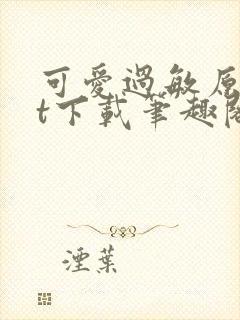 可愛過敏原
t下載筆趣閣
湮葉